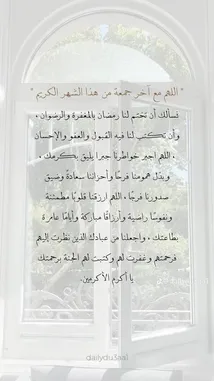 " اللهم مع آخر جمعة من هذا الشهر الكريم "
نسألك أن تختم لنا رمضان بالمغفرة والرضوان ،
وأن تكتب لنا فيه القبول والعفو والإحسان
، اللهم اجبر خواطرنا جبرا يليق بكرمك ،
وبدل همومنا فرحًا وأحزاننا سعادة وضيق
صدورنا فرجًا ، اللهم ارزقنا قلوبًا مطمئنة
ونفوسًا راضية وأرزاقًا مباركة وأيامًا عامرة
بطاعتك ، واجعلنا من عبادك الذين نظرت إليهم
فرحمتهم وغفرت لهم وكتبت لهم الجنة برحمتك
يا أكرم الأكرمين.
dailydu3aal